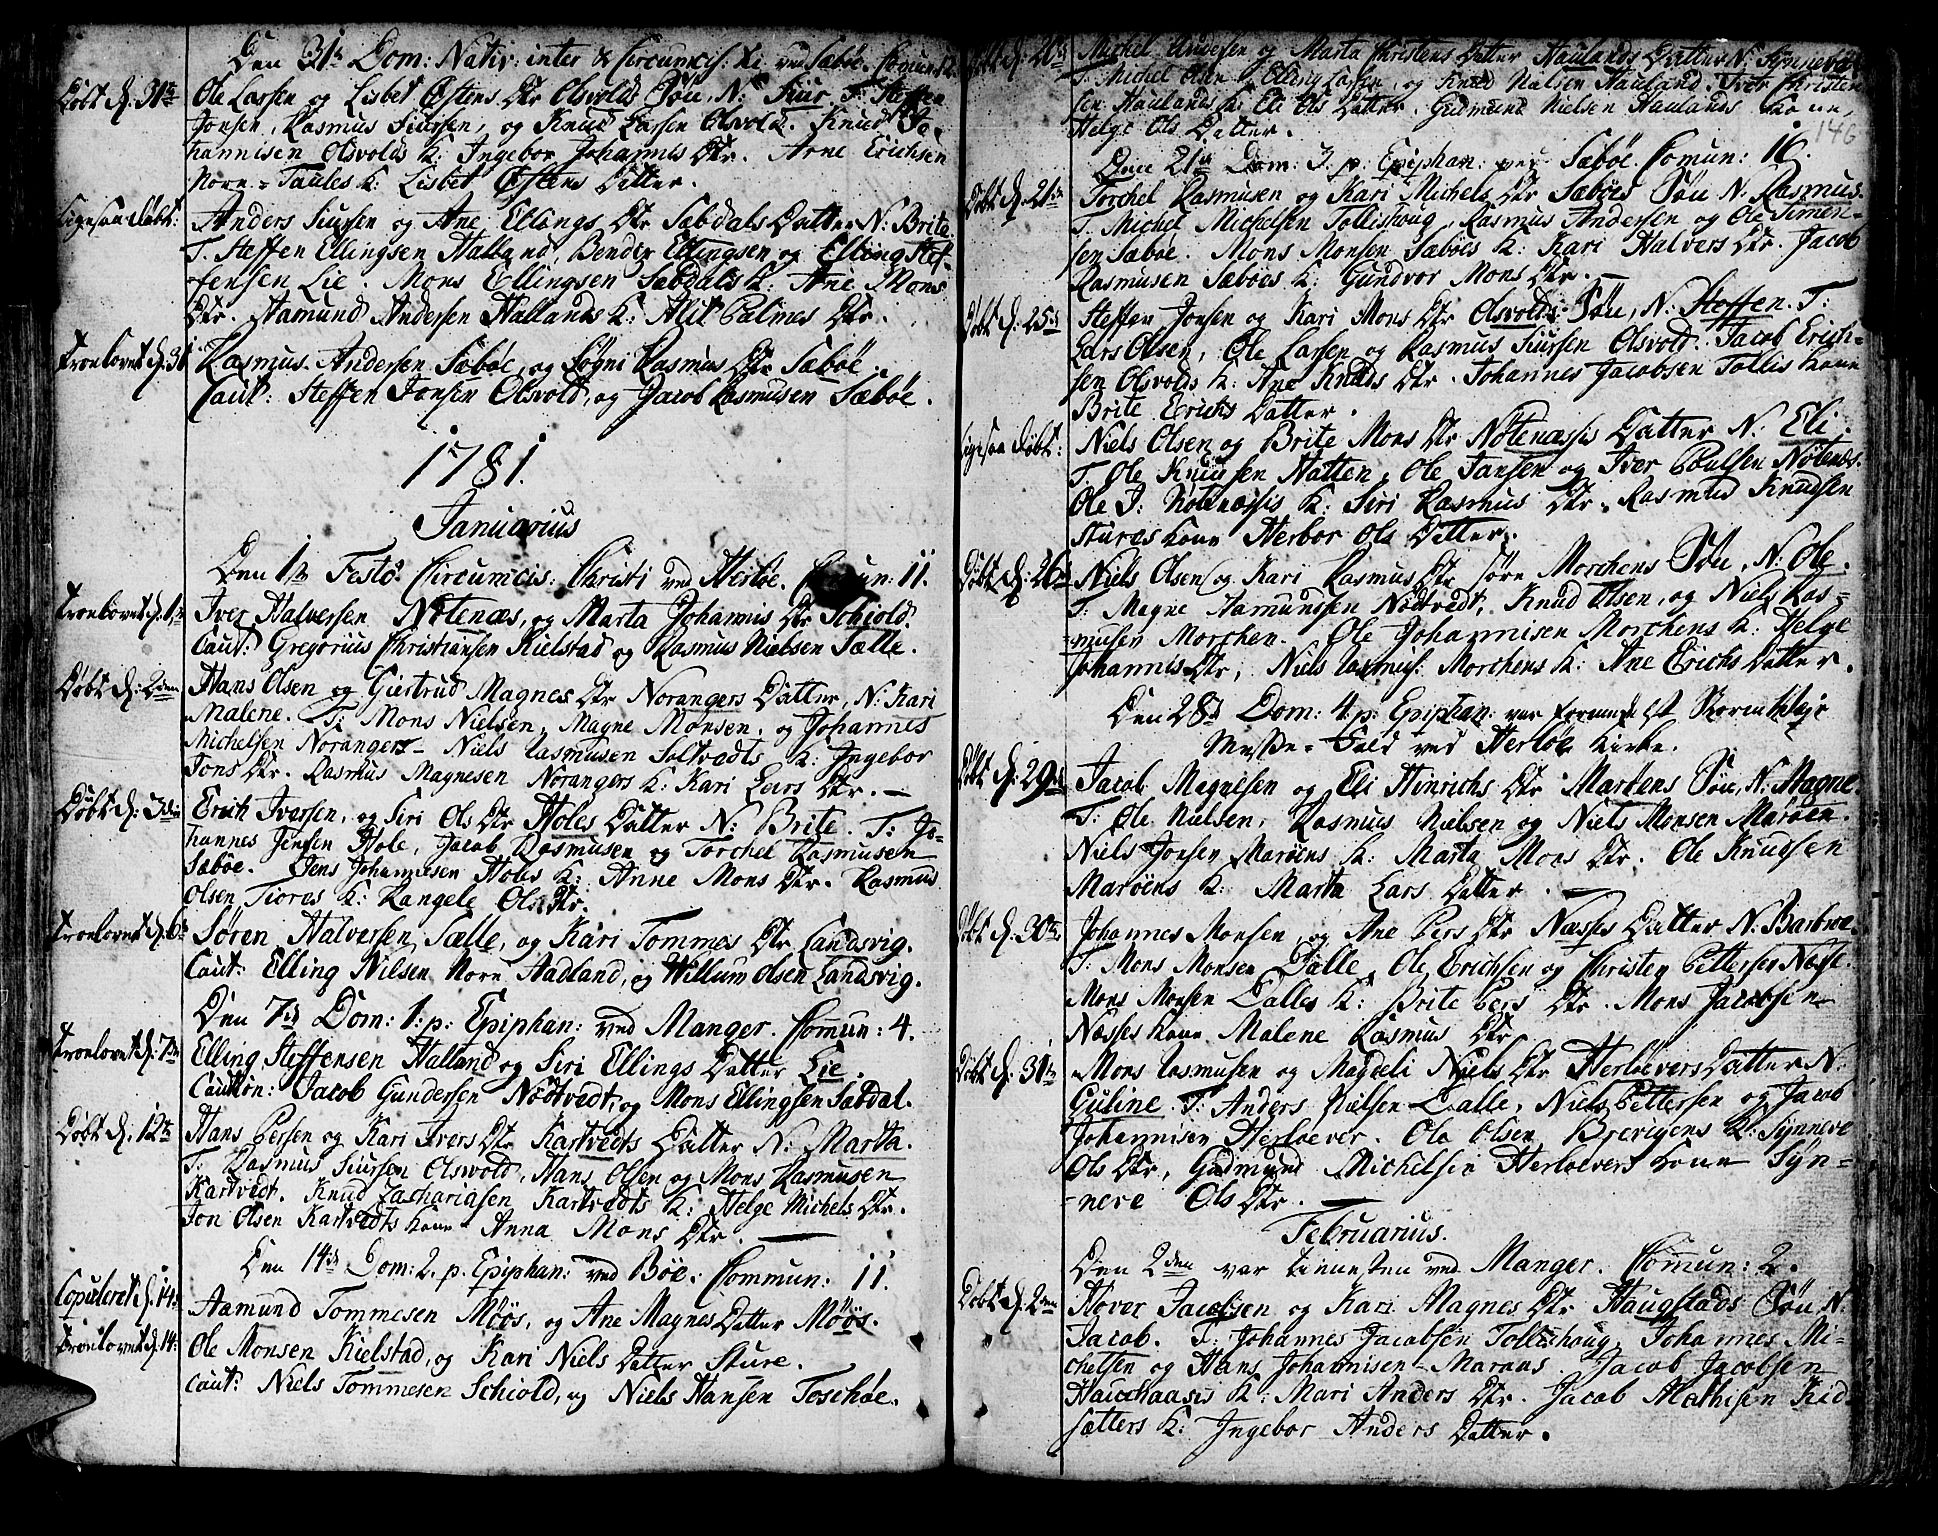 Den 31te Dom: Nativ: inter & Circumcis: Xi ved Sæbøe. Comun: 12
Døbt d: 31te Ole Larsen og Lisbet Østens Dtr Olsvolds Søn, N: Siur. T: Steffen
Jonsen, Rasmus Siursen, og Knud Larsen Olsvold. Knud Jo-
hannisen Olsvolds K: Ingebor Johannis Dtr. Arne Erichsen
Nore-Taules K: Lisbet Østens Datter.
Ligesaa døbt: Anders Siursen og Ane Ellings Dtr Sæbdals Datter N: Brite.
T. Steffen Ellingsen Halland, Bendix Ellingsen og Elling Stef-
fensen Lie. Mons Ellingsen Sæbdals K: Ane Mons
Dtr. Aamund Andersen Hallands K: Alit Palmes Dtr.
Troelovet d: 31 Rasmus Andersen Sæbøe, og Søgni Rasmus Dtr Sæbøe.
Caut: Steffen Jonsen Olsvold, og Jacob Rasmusen Sæbøe.
1781.
Januarius
Den 1te Festo Circumcis: Christi ved Herløe. Comun: 11.
Troelovet d: 1te Iver Halversen Nøtenæs, og Marta Johannis Dtr Schiold.
Caut: Gregorius Christiansen Kielstad og Rasmus Nielsen Sælle.
Døbt d: 2den Hans Olsen og Giertrud Magnes Dtr Norangers Datter, N: Kari
Malene. T: Mons Nielsen, Magne Monsen, og Johannes
Michelsen Noranger. Niels Rasmusen Soltvedts K: Ingebor
Jons Dtr. Rasmus Magnesen Norangers K: Kari Lars Dtr.
Døbt d: 3die Erich Iversen, og Siri Ols Dtr Holes Datter N: Brite. T: Jo-
hannes Jensen Hole, Jacob Rasmusen og Torchel Rasmusen
Sæbøe. Jens Johannisen Holes K: Anne Mons Dtr. Rasmus
Olsen Tiores K: Rangele Ols Dtr.
Troelovet d: 6te Søren Halversen Sælle, og Kari Tommes Dtr Landsvig.
Caut: Elling Nilsen Nore Aadland, og Willum Olsen Landsvig.
Den 7de Dom: 1. p: Epiphan: ved Manger. Comun: 4.
Troelovet d: 7de Elling Steffensen Halland og Siri Ellings Datter Lie.
Caution: Jacob Gundersen Nødtvedt, og Mons Ellingsen Sæbdal.
Døbt d: 12te Hans Persen og Kari Ivers Dtr Kartvedts Datter N: Marta.
T: Rasmus Siursen Olsvold, Hans Olsen og Mons Rasmusen
Kartvedt. Knud Zachariasen Kartvedts K: Helge Michels Dtr.
Jon Olsen Kartvedts Kone Anna Mons Dtr.
Den 14de Dom: 2. p. Epiphan: ved Bøe: Commun: 11.
Copuleret d: 14de Aamund Tommesen Møøs, og Ane Magnes Datter Møøs.
Troelovet d: 14 Ole Monsen Kielstad, og Kari Niels Datter Sture.
Caut: Niels Tommesen Schiold, og Niels Hansen Toschøe.
Døbt d: 20de Michel Andersen og Marta Christens Datter Haulands Datter N: Synneva.
T. Michel Olsen, Elling Larsen, og Knud Nielsen Hauland. Iver Christen-
sen Haulands K: Eli Ols Datter. Gudmund Nielsen Haulands Kone,
Helge Ols Datter.
146
Den 21de Dom: 3. p: Epiphan: ved Sæbøe. Comun: 16.
Døbt d: 21de Torchel Rasmusen og Kari Michels Dtr Sæbøes Søn N. Rasmus.
T. Michel Michelsen Tollishoug, Rasmus Andersen og Ole Simen-
sen Sæbøe. Mons Monsen Sæbøes K: Kari Halvers Dtr. Jacob
Rasmusen Sæbøes K: Gundvor Mons Dtr.
Døbt d: 25de Steffen Jonsen og Kari Mons Dtr Olsvolds Søn, N: Steffen. T:
Lars Olsen, Ole Larsen og Rasmus Siursen Olsvold. Jacob Erich-
sen Olsvolds K: Ane Knuds Dtr. Johannes Jacobsen Tollis Kone
Brite Erichs Datter.
Ligesaa døbt: Niels Olsen og Brite Mons Dtr Nøtenæsis Datter N: Eli.
T. Ole Knudsen Hatten, Ole Jansen og Iver Poulsen Nøtenæs.
Ole I: Nøtenæsis K: Siri Rasmus Dtr. Rasmus Knudsen
Stures Kone Herbor Ols Datter.
Døbt d: 26de Niels Olsen og Kari Rasmus Dtr Søre Morchens Søn, N: Ole.
T: Magne Aamundsen Nødtvedt, Knud Olsen, og Niels Ras-
musen Morchen. Ole Johannisen Morchens K: Helge
Johannis Dtr, Niels Rasmus: Morchens K: Ane Erichs Datter.
Den 28de Dom: 4. p: Epiphan: var formedelst Storm ingen
Messe-Fald ved Herløe Kirke.
Døbt d: 29de Jacob Magnesen og Eli Hinrichs Dtr Marøens Søn, N: Magne.
T: Ole Nielsen, Rasmus Nielsen og Niels Monsen Marøen.
Niels Jonsen Marøens K: Marta Mons Dtr. Ole Knudsen
Marøens K: Marta Lars Datter.
Døbt d: 30te Johannes Monsen, og Ane Pers Dtr Næssis Datter N: Barbroe.
T: Mons Monsen Dalle, Ole Erichsen og Christen Pettersen Næsse.
Mons Monsen Dalles K: Brite Pers Dtr. Mons Jacobsen
Næsses Kone Malene Rasmus Dtr.
Døbt d: 31te Mons Rasmusen og Magdeli Niels Dtr Herløevers Datter N:
Guline. T: Anders Nielsen Dalle, Niels Pettersen og Jacob
Johannisen Herløever. Ole Olsen Brevigens K: Synneve
Ols Dtr, Gudmund Michelsen Herløevers Kone Syn-
neve Ols Dtr.
Februarius.
Den 2den var tienesten ved Manger. Comun: 2.
Døbt d: 2den Hover Jacobsen og Kari Magnes Dtr Haugstads Søn N.
Jacob. T: Johannes Jacobsen Tollishoug, Johannes Mi-
chelsen og Hans Johannisen Maraas. Jacob Jacobsen
K: Mari Anders Dtr. Jacob Mathisen Kid-
sætters K: Ingebor Anders Datter.